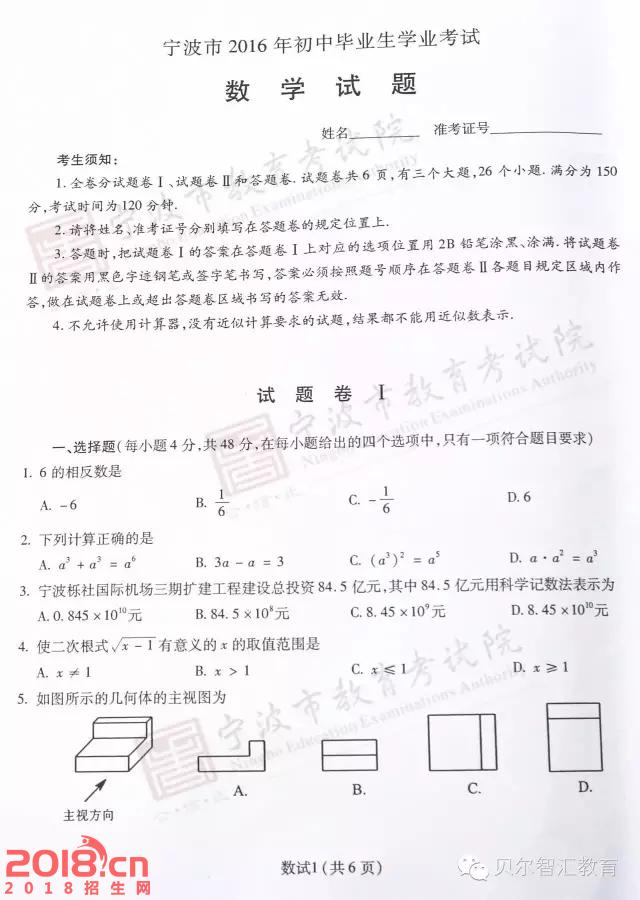 宁波市 2016 年初中毕业生学业考试
数 学 试 题
姓名________ 准考证号____________
考生须知:
1. 全卷分试题卷Ⅰ、试题卷Ⅱ和答题卷. 试题卷共 6 页, 有三个大题, 26 个小题. 满分为 150
分, 考试时间为 120 分钟.
2. 请将姓名、准考证号分别填写在答题卷的规定位置上.
3. 答题时, 把试题卷Ⅰ的答案在答题卷Ⅰ上对应的选项位置用 2B 铅笔涂黑、涂满. 将试题卷
Ⅱ的答案用黑色字迹钢笔或签字笔书写, 答案必须按照题号顺序在答题卷Ⅱ各题目规定区域内作
答, 做在试题卷上或超出答题卷区域书写的答案无效.
4. 不允许使用计算器, 没有近似计算要求的试题, 结果都不能用近似数表示.
试 题 卷 Ⅰ
一、选择题(每小题 4 分, 共 48 分, 在每小题给出的四个选项中, 只有一项符合题目要求)
1. 6 的相反数是
A. -6 B. 1/6 C. -1/6 D. 6
2. 下列计算正确的是
A. a³ + a³ = a⁶ B. 3a - a = 3 C. (a³)² = a⁵ D. a · a² = a³
3. 宁波栎社国际机场三期扩建工程建设总投资 84. 5 亿元, 其中 84. 5 亿元用科学记数法表示为
A. 0. 845 × 10¹⁰元 B. 84. 5 × 10⁸元 C. 8. 45 × 10⁹元 D. 8. 45 × 10¹⁰元
4. 使二次根式 √(x - 1) 有意义的 x 的取值范围是
A. x ≠ 1 B. x > 1 C. x ≤ 1 D. x ≥ 1
5. 如图所示的几何体的主视图为
主视方向
A. B. C. D.
数试1 (共 6 页)
2018.cn
2018招生网
贝尔智汇教育
宁波市教育考试院
Ningbo Education Examinations Authority